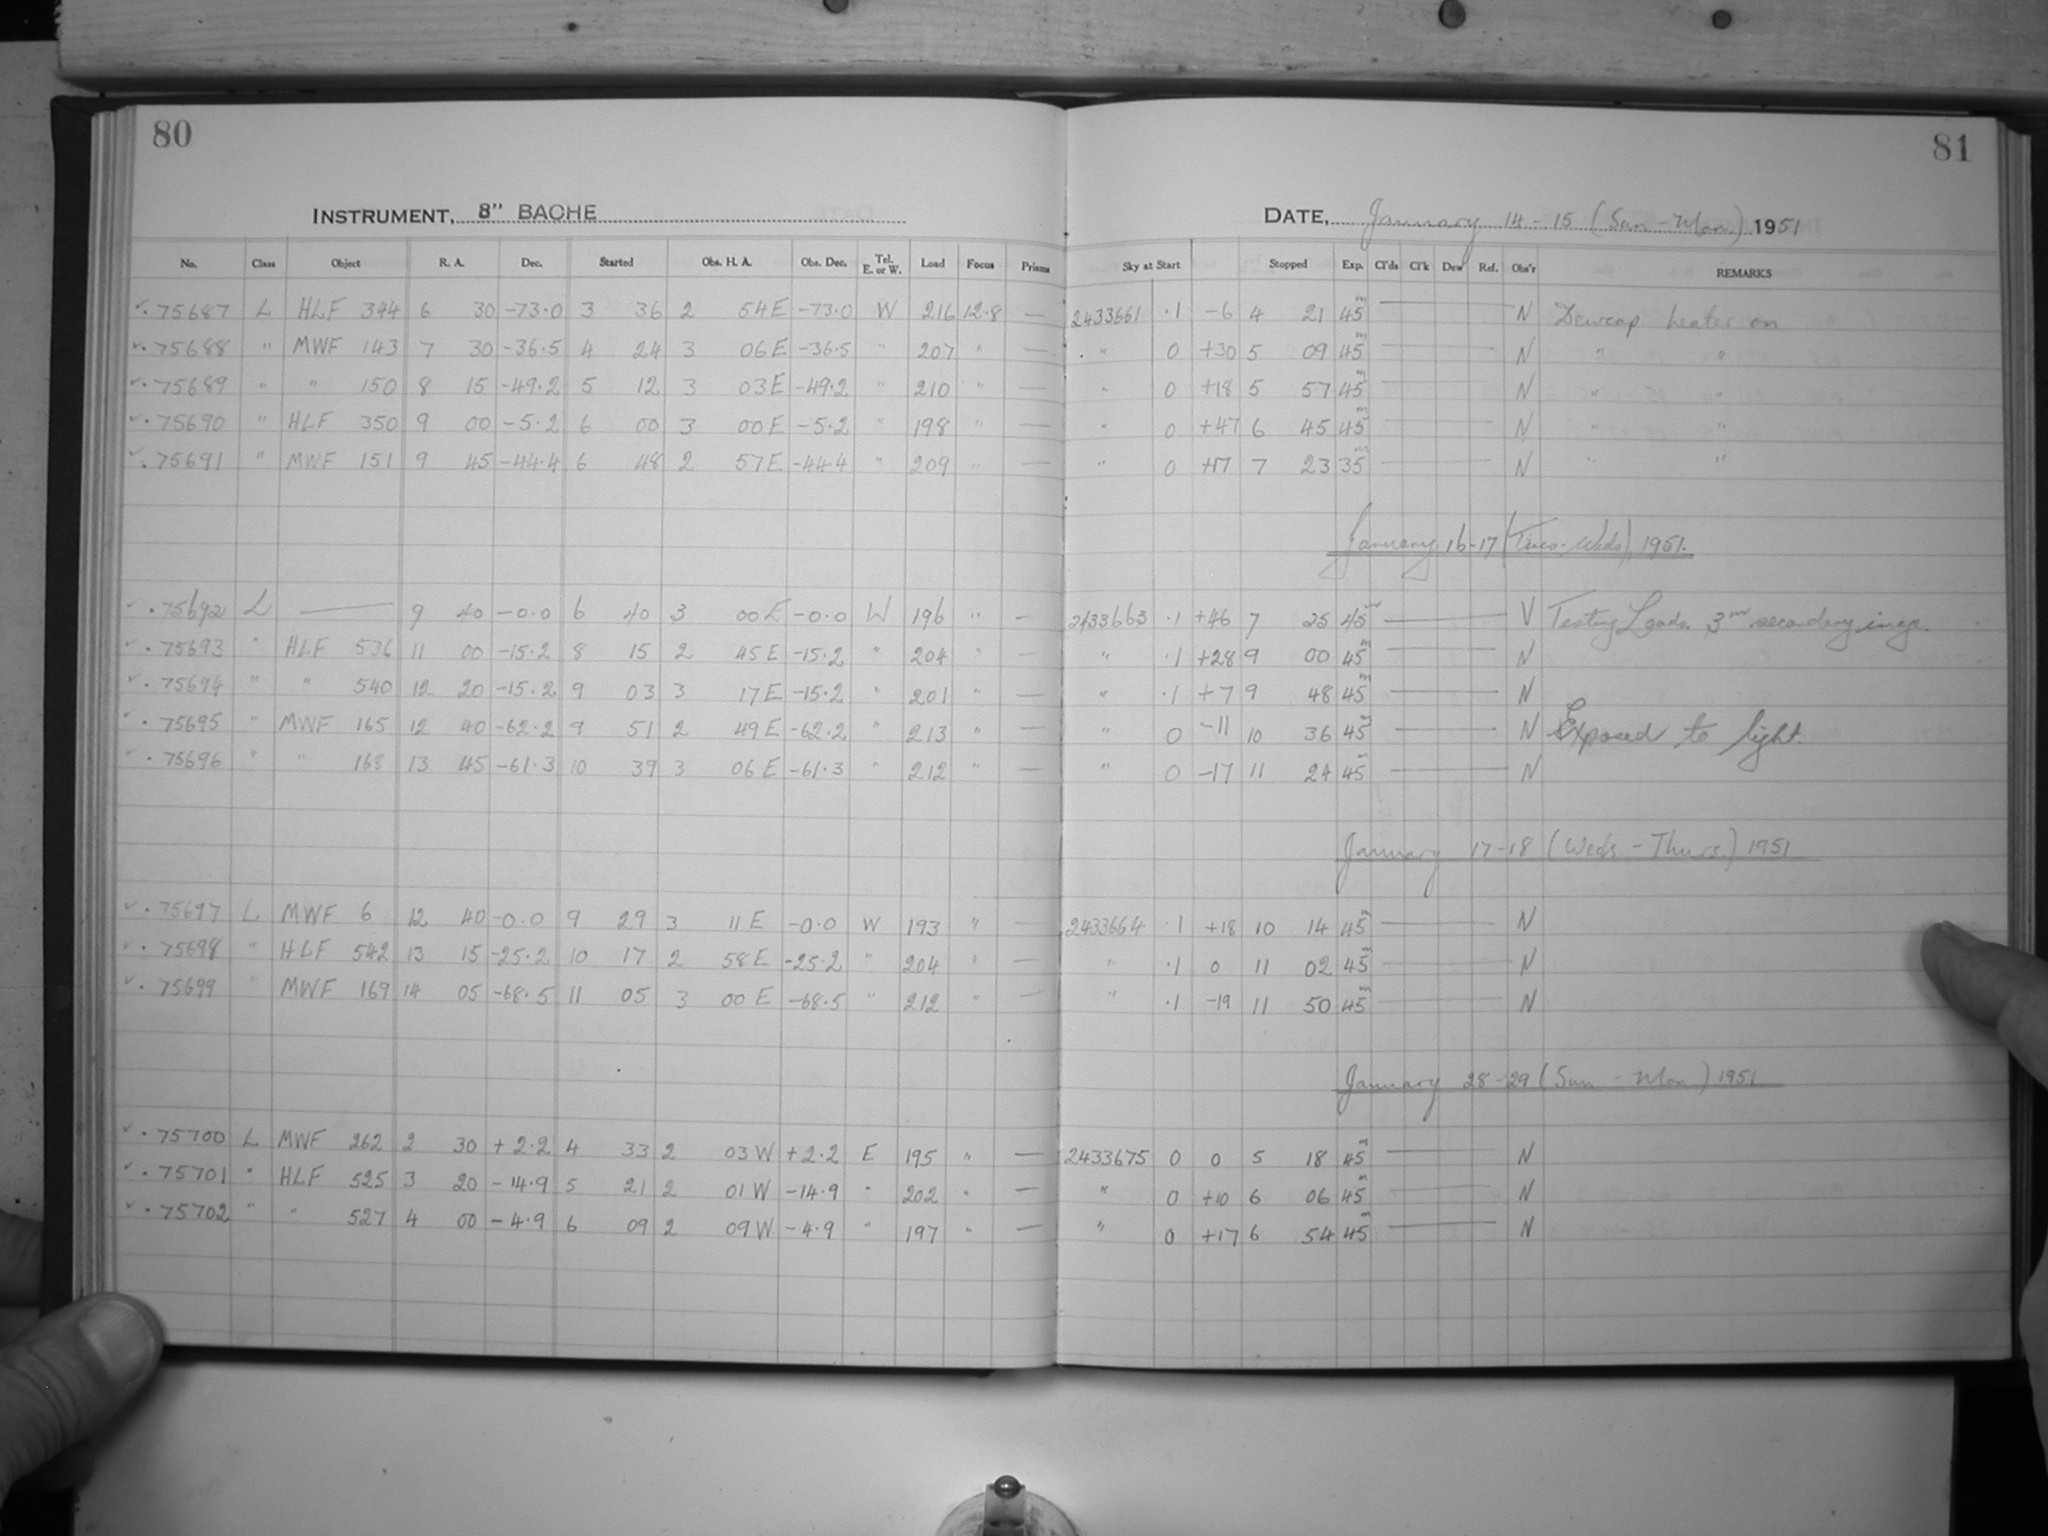 80
81
INSTRUMENT, 8" BACHE
DATE, January 14-15 (Sun-Mon.) 1951
No. Class Object R. A. Dec. Started Obs. H. A. Obs. Dec. Tel. E. or W. Load Focus Prisms Sky at Start Stopped Exp. Cl'ds Cl'k Dew Ref. Obs'r REMARKS
✓. 75687 L HLF 344 6 30 -73.0 3 36 2 54 E -73.0 W 216 12.8 — 2433661 .1 -6 4 21 45m — N Dewcap heater on
✓. 75688 " MWF 143 7 30 -36.5 4 24 3 06 E -36.5 " 207 " — " 0 +30 5 09 45m — N " "
✓. 75689 " " 150 8 15 -49.2 5 12 3 03 E -49.2 " 210 " — " 0 +18 5 57 45m — N " "
✓. 75690 " HLF 350 9 00 -5.2 6 00 3 00 E -5.2 " 198 " — " 0 +47 6 45 45m — N " "
✓. 75691 " MWF 151 9 45 -44.4 6 48 2 57 E -44.4 " 209 " — " 0 +17 7 23 35m — N " "
January 16-17 (Tues-Weds), 1951.
✓. 75692 L — 9 40 -0.0 6 40 3 00 E -0.0 W 196 " — 2433663 .1 +46 7 25 45m — V Testing Loads. 3m secondary image.
✓. 75693 " HLF 536 11 00 -15.2 8 15 2 45 E -15.2 " 204 " — " .1 +28 9 00 45m — N
✓. 75694 " " 540 12 20 -15.2 9 03 3 17 E -15.2 " 201 " — " .1 +7 9 48 45m — N
✓. 75695 " MWF 165 12 40 -62.2 9 51 2 49 E -62.2 " 213 " — " 0 -11 10 36 45m — N Exposed to light.
✓. 75696 " " 168 13 45 -61.3 10 39 3 06 E -61.3 " 212 " — " 0 -17 11 24 45m — N
January 17-18 (Weds. - Thurs.) 1951
✓. 75697 L MWF 6 12 40 -0.0 9 29 3 11 E -0.0 W 193 " — 2433664 .1 +18 10 14 45m — N
✓. 75698 " HLF 542 13 15 -25.2 10 17 2 58 E -25.2 " 204 " — " .1 0 11 02 45m — N
✓. 75699 " MWF 169 14 05 -68.5 11 05 3 00 E -68.5 " 212 " — " .1 -19 11 50 45m — N
January 28-29 (Sun - Mon) 1951
✓. 75700 L MWF 262 2 30 +2.2 4 33 2 03 W +2.2 E 195 " — 2433675 0 0 5 18 45m — N
✓. 75701 " HLF 525 3 20 -14.9 5 21 2 01 W -14.9 " 202 " — " 0 +10 6 06 45m — N
✓. 75702 " " 527 4 00 -4.9 6 09 2 09 W -4.9 " 197 " — " 0 +17 6 54 45m — N